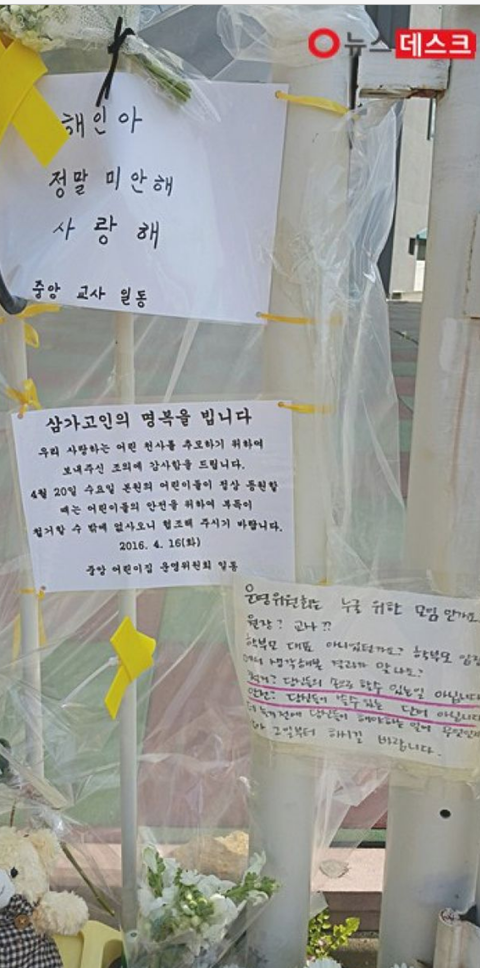 뉴스데스크
해인아
정말 미안해
사랑해
중앙 교사 일동
삼가고인의 명복을 빕니다
우리 사랑하는 어린 천사를 추모하기 위하여
보내주신 조의에 감사함을 드립니다.
4월 20일 수요일 본원의 어린이들이 정상 등원할
때는 어린이들의 안전을 위하여 부득이
철거할 수 밖에 없사오니 협조해 주시기 바랍니다.
2016. 4. 16(화)
중앙 어린이집 운영위원회 일동
운영위원회는 누굴 위한 모임 인가요
원장? 교사??
학부모 대표 아니었던가요? 학부모 입장
에서 생각해본 결과가 맞나요?
철거? 당신들의 손으로 할수 있는일 아닙니다
안전? 당신들이 쓸수 있는 단어 아닙니다
더 늦기전에 당신들이 해야하는 일이 무엇인지
고민부터 하시길 바랍니다.